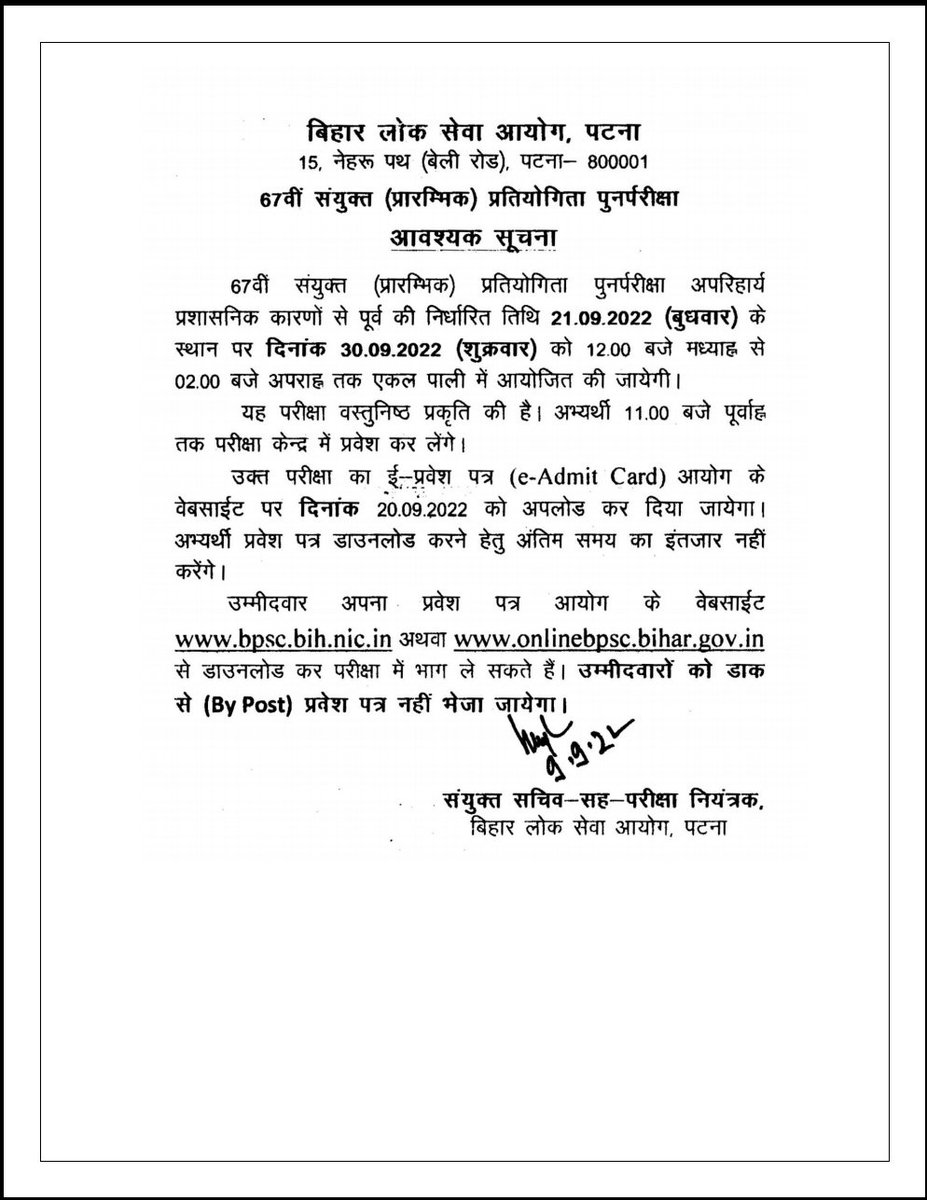 बिहार लोक सेवा आयोग, पटना
15, नेहरू पथ (बेली रोड), पटना– 800001
67वीं संयुक्त (प्रारम्भिक) प्रतियोगिता पुनर्परीक्षा
आवश्यक सूचना
67वीं संयुक्त (प्रारम्भिक) प्रतियोगिता पुनर्परीक्षा अपरिहार्य
प्रशासनिक कारणों से पूर्व की निर्धारित तिथि 21.09.2022 (बुधवार) के
स्थान पर दिनांक 30.09.2022 (शुक्रवार) को 12.00 बजे मध्याह्न से
02.00 बजे अपराह्न तक एकल पाली में आयोजित की जायेगी।
यह परीक्षा वस्तुनिष्ठ प्रकृति की है। अभ्यर्थी 11.00 बजे पूर्वाह्न
तक परीक्षा केन्द्र में प्रवेश कर लेंगे।
उक्त परीक्षा का ई–प्रवेश पत्र (e-Admit Card) आयोग के
वेबसाईट पर दिनांक 20.09.2022 को अपलोड कर दिया जायेगा।
अभ्यर्थी प्रवेश पत्र डाउनलोड करने हेतु अंतिम समय का इंतजार नहीं
करेंगे।
उम्मीदवार अपना प्रवेश पत्र आयोग के वेबसाईट
www.bpsc.bih.nic.in अथवा www.onlinebpsc.bihar.gov.in
से डाउनलोड कर परीक्षा में भाग ले सकते हैं। उम्मीदवारों को डाक
से (By Post) प्रवेश पत्र नहीं भेजा जायेगा।
9.9.22
संयुक्त सचिव–सह–परीक्षा नियंत्रक,
बिहार लोक सेवा आयोग, पटना